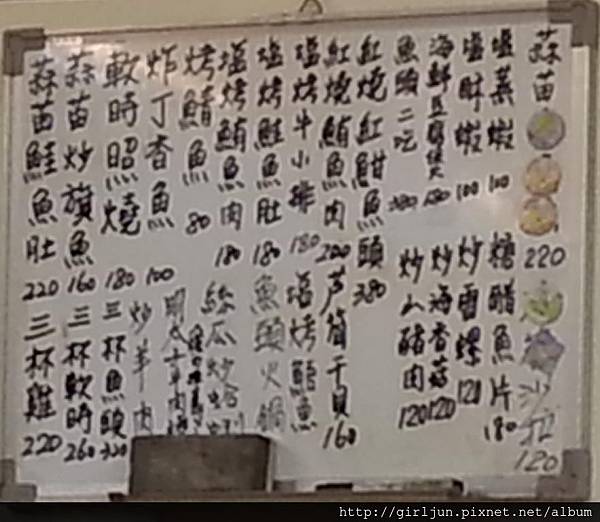 蒜苗 220
塩蒸蝦 100
塩酥蝦 100
海鮮豆腐 180
魚頭二吃 380
紅燒紅魽魚頭 380
紅燒鮪魚肉 200
塩烤牛小排 180
塩烤鮭魚肚 180
塩烤鮪魚肉 180
烤鯖魚 80
炸丁香魚 100
軟時照燒 180
蒜苗炒旗魚 160
蒜苗鮭魚肚 220
沙拉 120
糖醋魚片 180
炒雪螺 120
炒海香菇 120
炒山豬肉 120
芦筍干貝 160
塩烤魚
魚頭火鍋
絲瓜炒蛤蜊
炒羊肉
三杯魚頭 320
三杯軟時 260
三杯雞 220
http://girljun.pixnet.net/album